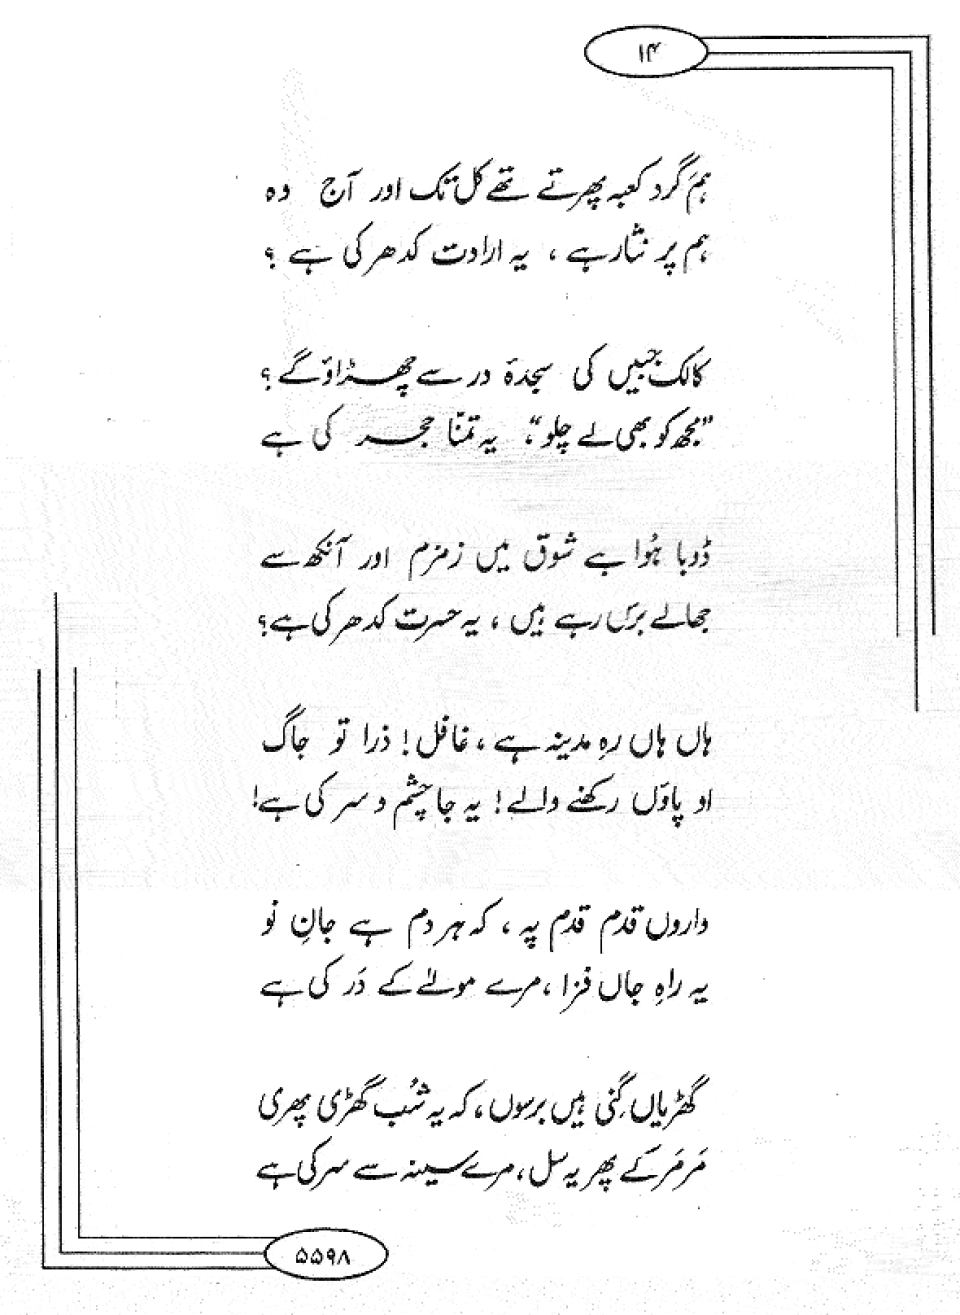 ۱۴
ہم گرد کعبہ پھرتے تھے کل تک اور آج وہ
ہم پر نثار ہے ، یہ ارادت کدھر کی ہے ؟
کالک جبیں کی سجدۂ در سے چھڑاؤ گے ؟
”مجھ کو بھی لے چلو“، یہ تمنّا حجر کی ہے
ڈوبا ہُوا ہے شوق میں زمزم اور آنکھ سے
جھالے برس رہے ہیں ، یہ حسرت کدھر کی ہے ؟
ہاں ہاں رہِ مدینہ ہے ، غافل ! ذرا تو جاگ
او پاؤں رکھنے والے ! یہ جا چشم و سر کی ہے !
واروں قدم قدم پہ ، کہ ہر دم ہے جانِ نو
یہ راہِ جاں فزا ، مرے مولےٰ کے دَر کی ہے
گھڑیاں گِنی ہیں برسوں ، کہ یہ شُب گھڑی پھری
مَر مَر کے پھر یہ سل ، مرے سینہ سے سرکی ہے
۵۵۹۸